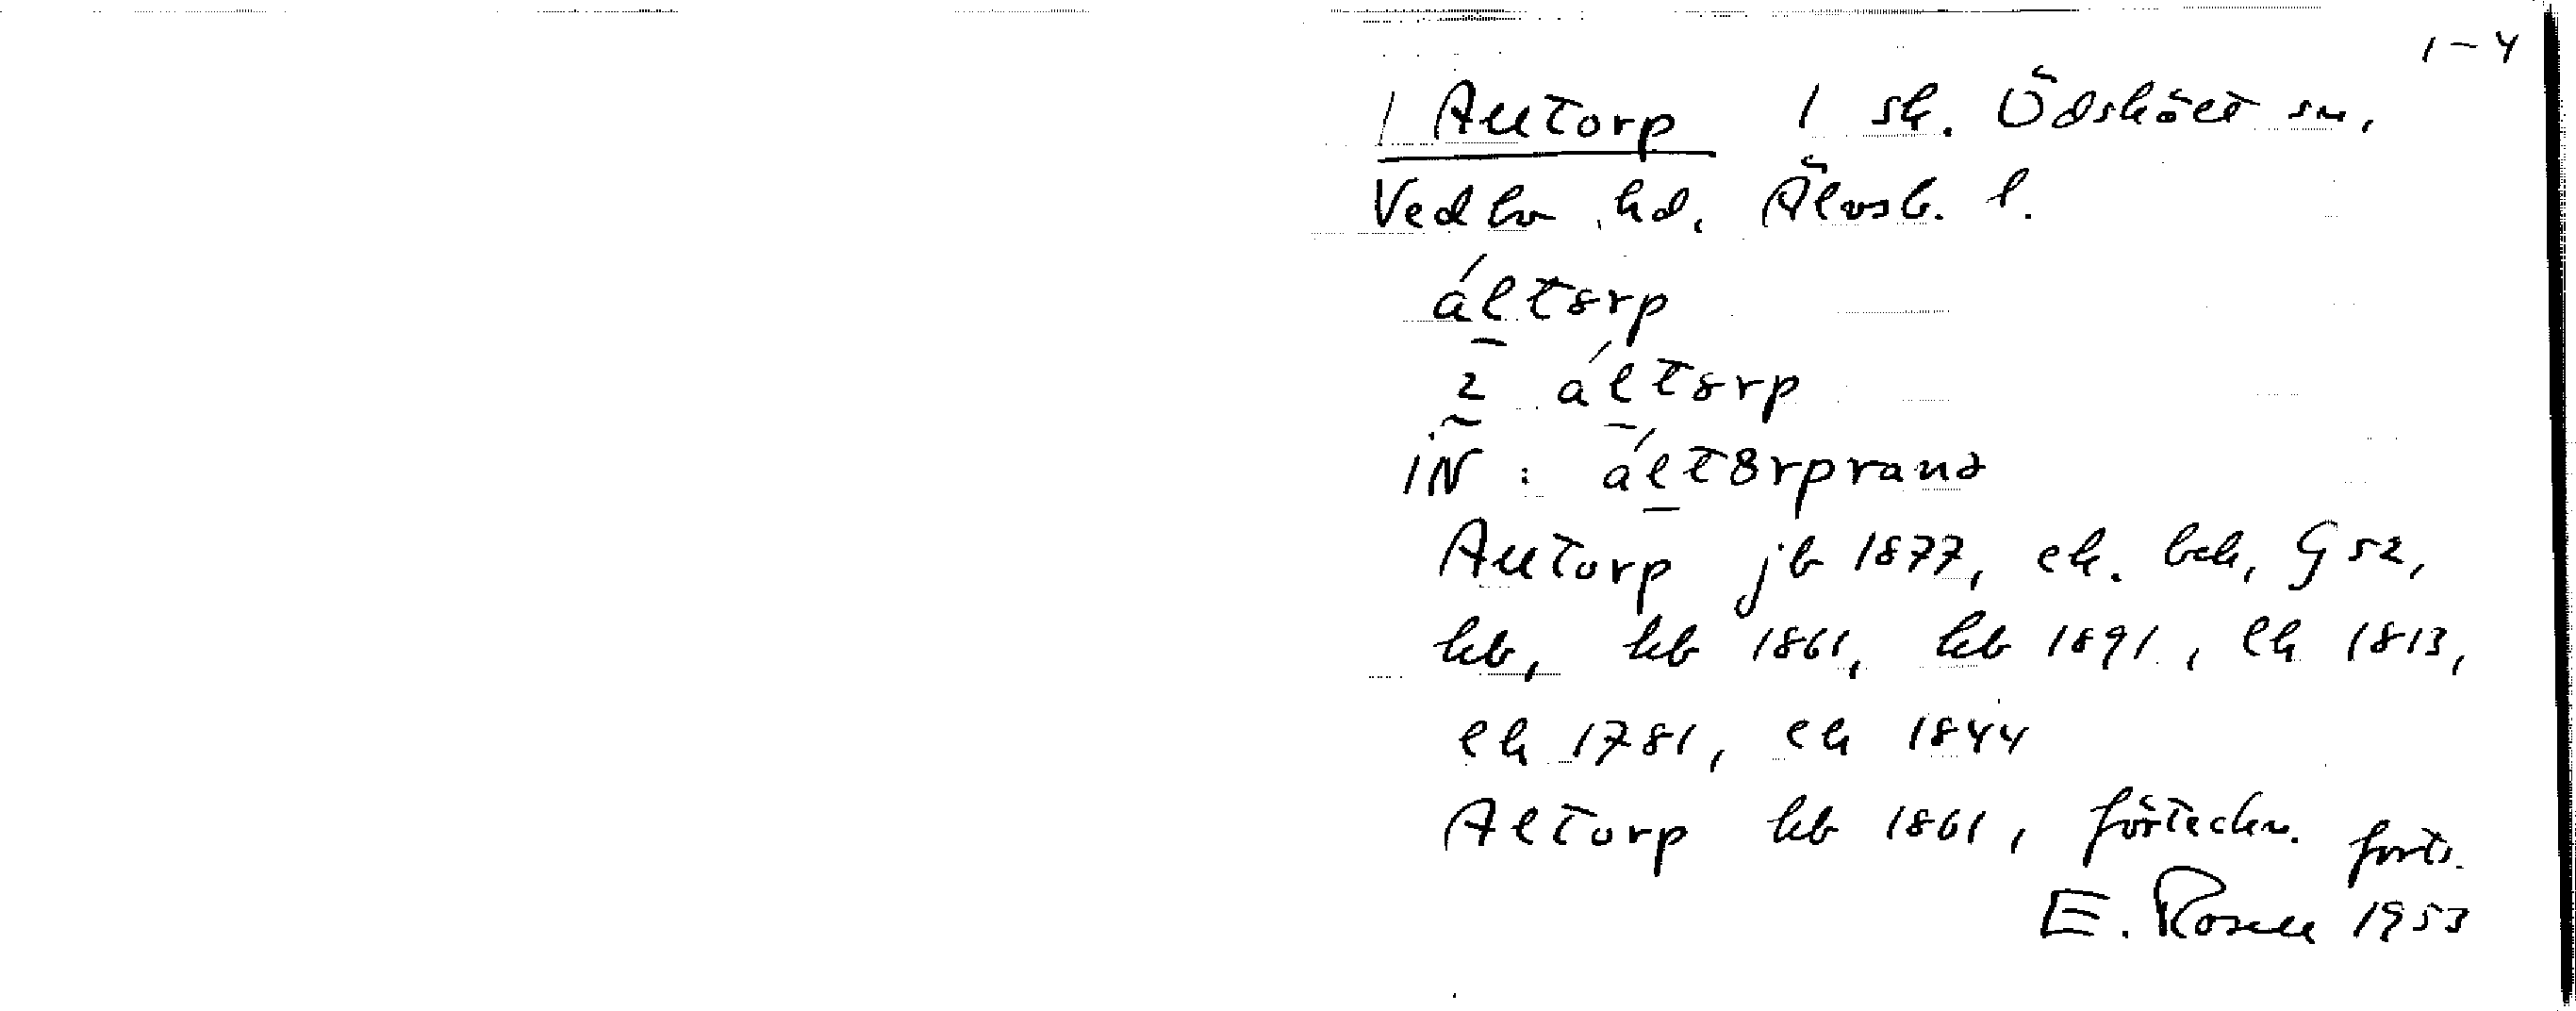 1-4
1 Alltorp 1 sk. Ödskölt sn,
Vedbo hd, Älvsb. l.
áltorp
2 áltorp
IN: áltorprana
Alltorp jb 1877, ek. bek, G 52,
kb, kb 1861, hb 1891, ek 1813,
ek 1781, ek 1844
Altorp kb 1861, förteckn. forts.
E. Rosell 1953